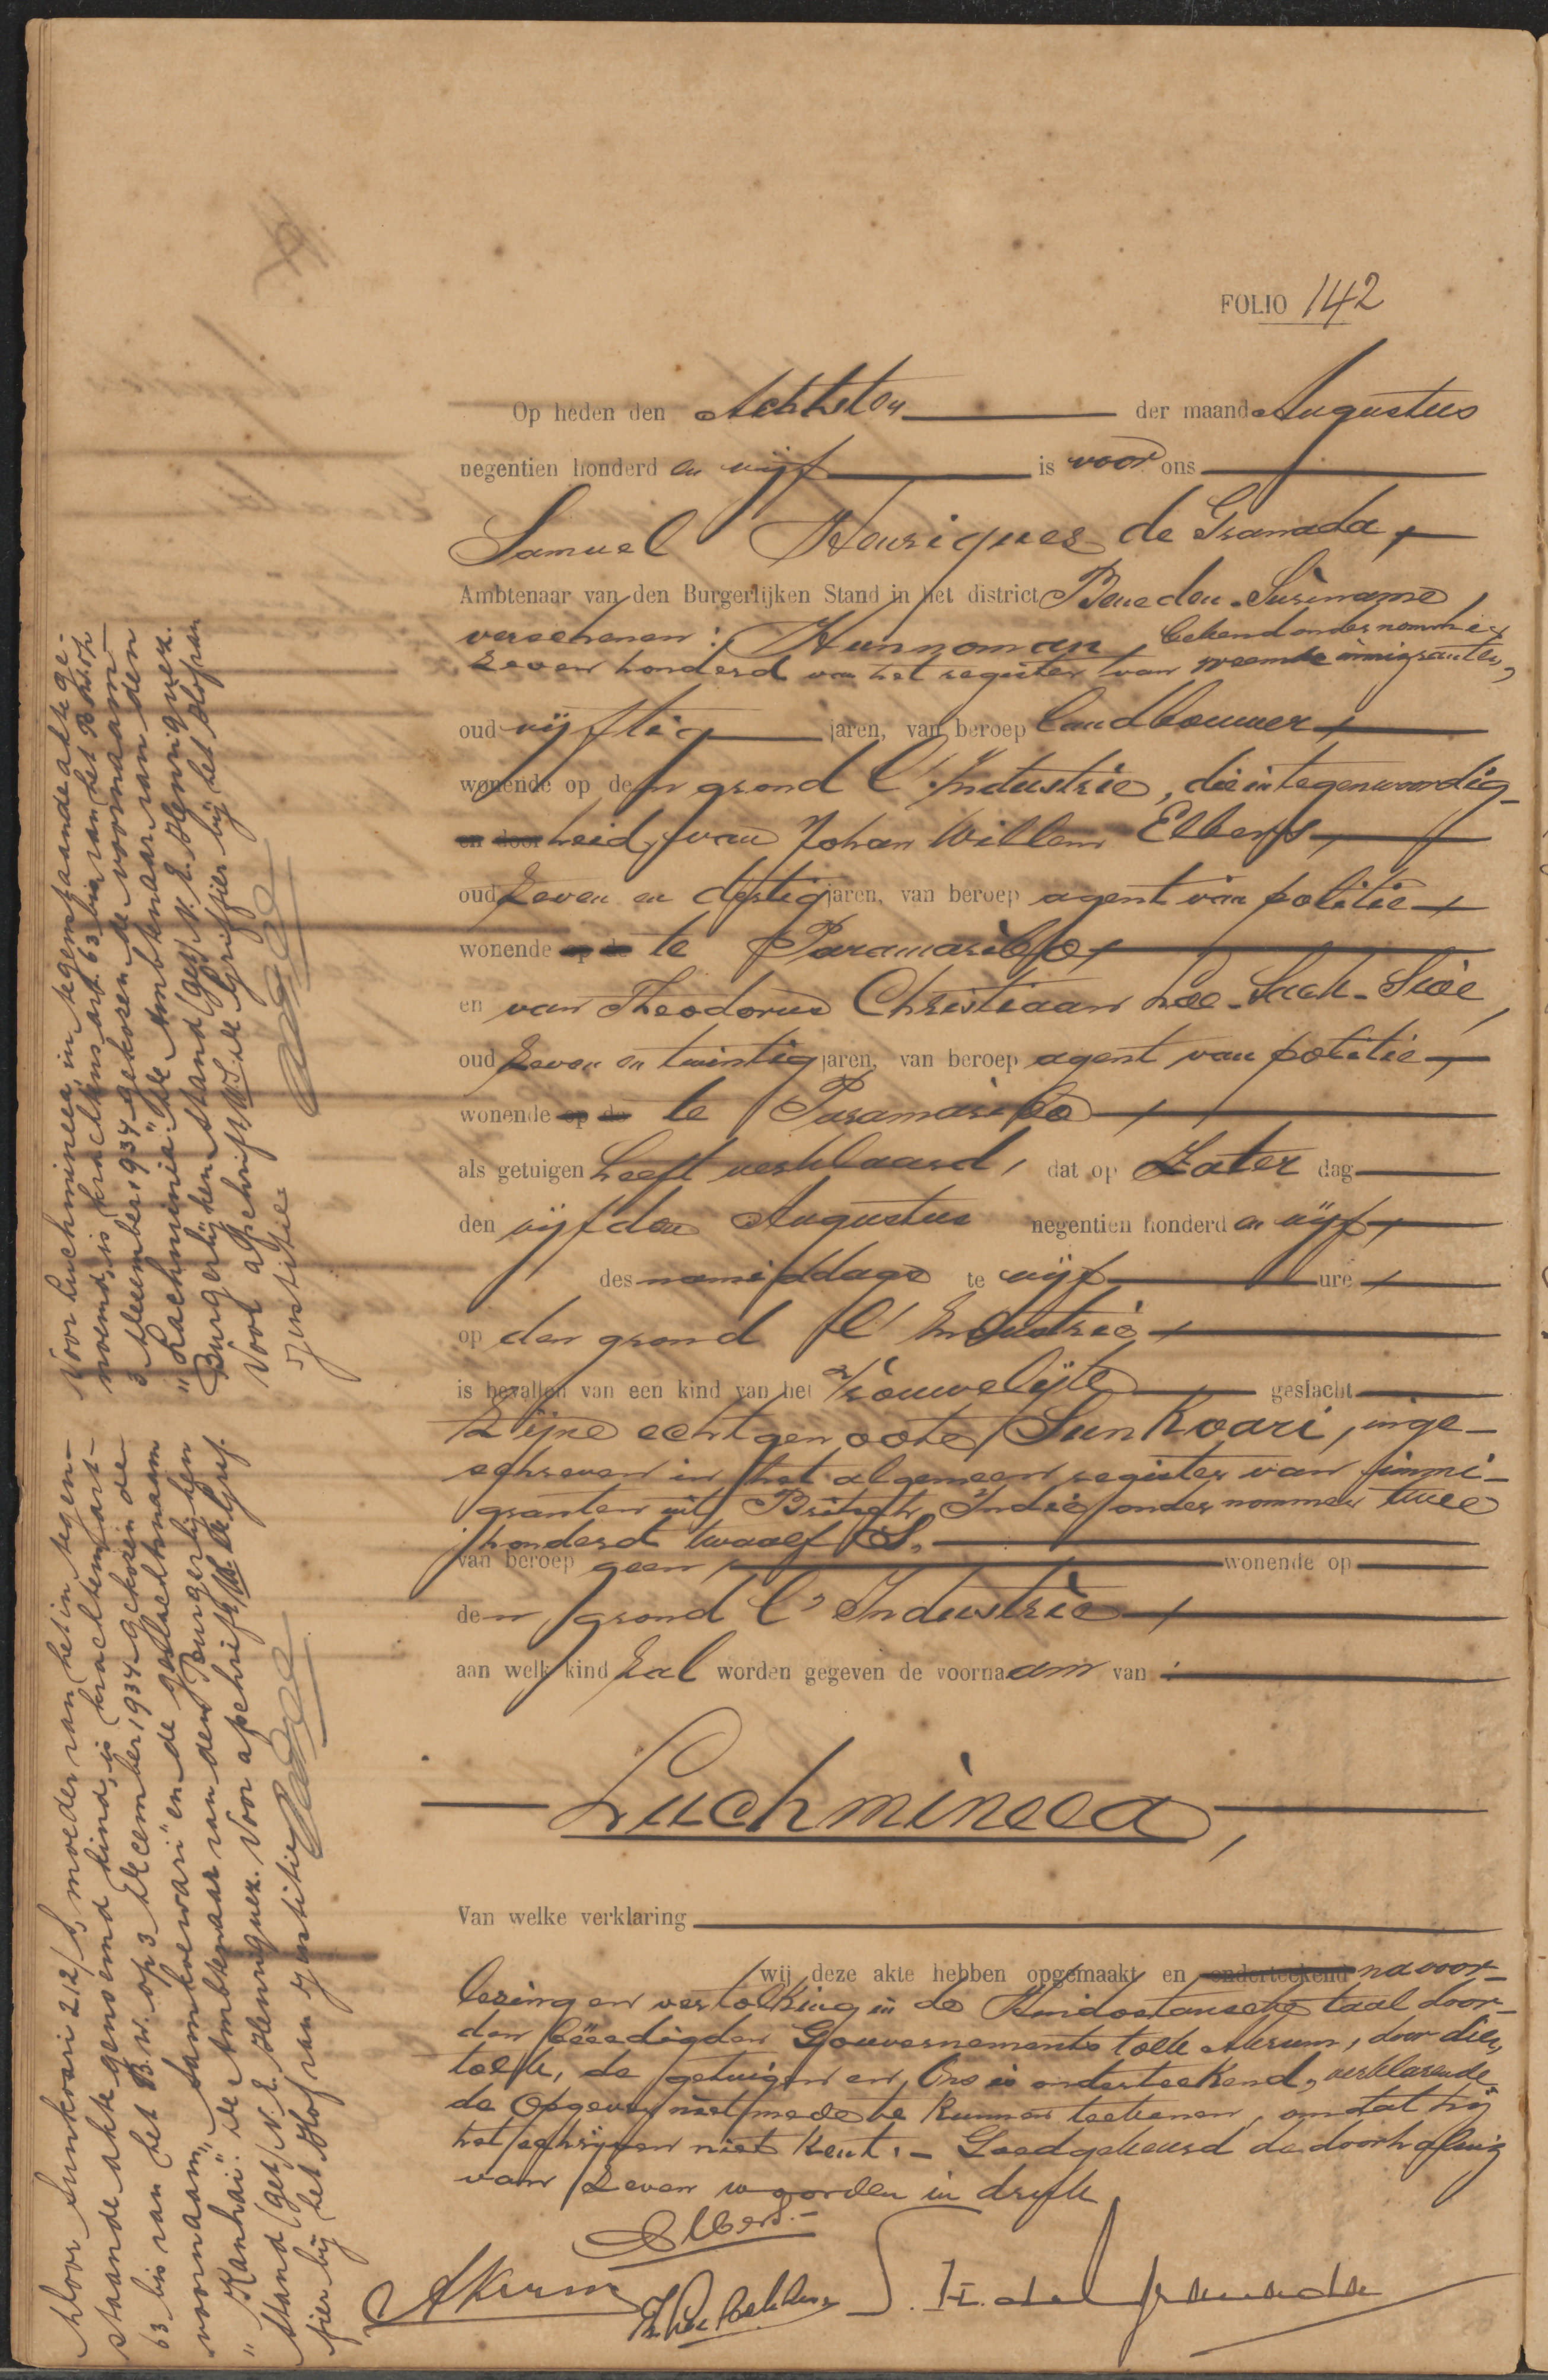 FOLIO 142
Op heden den Achtsten der maand Augustus
negentien honderd en vijf is voor ons
Samuel Henriques de Granada,
Ambtenaar van den Burgerlijken Stand in het district Beneden-Suriname,
verschenen: Hunnoman, bekend onder nommer
zeven honderd van het register van vreemde immigranten,
oud vijftig jaren, van beroep landbouwer,
wonende op den grond l'Industrie, die in tegenwoordig-
en door heid, van Johan Willem Elbers,
oud zeven en dertig jaren, van beroep agent van politie,
wonende op de te Paramaribo,
en van Theodorus Christiaan Loe-Sack-Sioe,
oud zeven en twintig jaren, van beroep agent van politie,
wonende op de te Paramaribo,
als getuigen heeft verklaard, dat op Zater dag
den vijfden Augustus negentien honderd en vijf,
des namiddags te vijf ure,
op den grond l'Industrie,
is bevallen van een kind van het Vrouwelijke geslacht
zijne echtgenoote, Sunkoari, inge-
schreven in het algemeen register van immi-
granten uit Britsch Indië onder nommer twee
honderd twaalf S,
van beroep geen, wonende op
den grond l'Industrie,
aan welk kind zal worden gegeven de voornaam van:
Luchmineea,
Van welke verklaring
wij deze akte hebben opgemaakt en onderteekend na voor-
lezing en vertolking in de Hindostansche taal door
den beëedigden Gouvernements tolk Akrum, door dien
tolk, de getuigen en Ons is onderteekend, verklarende
de Opgever niet mede te kunnen teekenen, omdat hij
het schrijven niet kent. - Goedgekeurd de doorhaling
van zeven woorden in druk
Elbers.-
Akrum
S. H. de Granada
Voor Luchmineea, in tegenstaande akte ge-
noemd, is krachtens art. 63 bis van het B.W. op
3 December 1934 gekozen de voornaam
"Lachminia". De Ambtenaar van den
Burgerlijken Stand (get) N. E. Henriquez.
Voor afschrift, De Griffier bij het Hof van
Justitie
Voor Sunkoari 212/S, moeder van het in tegen-
staande akte genoemd kind, is krachtens art.
63 bis van het B.W. op 3 December 1934 gekozen de
voornaam "Sankoewari" en de geslachtsnaam
"Kanhai". De Ambtenaar van den Burgerlijken
Stand (get) N. E. Henriquez. Voor afschrift, De Grif-
fier bij het Hof van Justitie